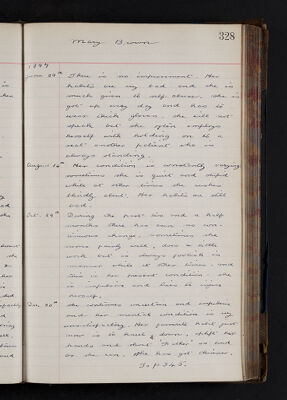 328
May Brown
1897
June 29th There is no improvement. Her
habits are very bad and she is
much given to self abuse. She is
got up every day and has to
wear thick gloves. She will not
speak but she often employs
herself with holding on to a
seat another patient she is
always standing.
August 14th Her condition is constantly varying
sometimes she is quiet and stupid
while at other times she rushes
blindly about. Her habits are still
bad.
Oct. 29th During the past two and a half
months there has been no con-
tinuous change. Sometimes she
seems fairly well, does a little
work but is always foolish in
manner while at other times, and
this is her present condition she
is impulsive and tries to injure
herself.
Dec. 30th She continues unsettled and impulsive
and her mental condition is very
unsatisfactory. Her favourite habit just
now is to kneel down, uplift her
hands and shout "Father" as loud
as she can. She has got thinner.
To p 345.